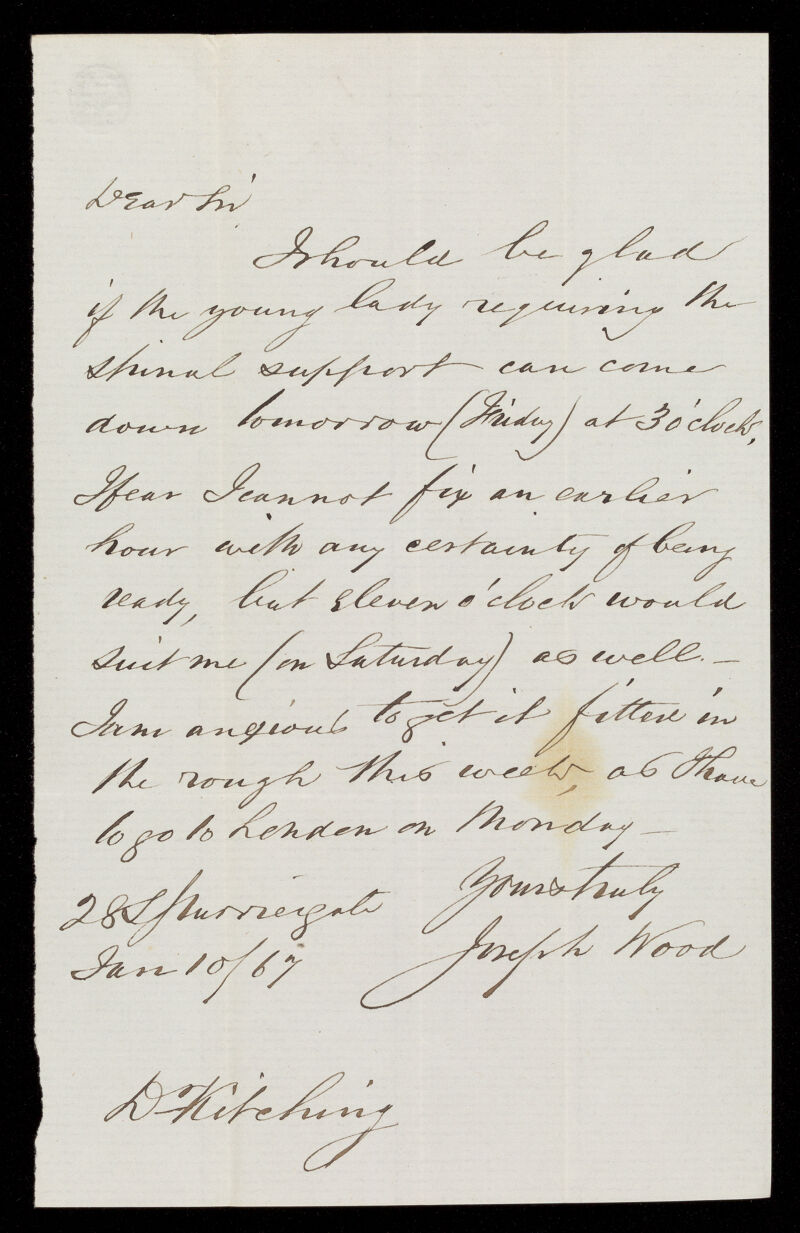 Dear Sir
I should be glad
if the young lady requiring the
spinal support can come
down tomorrow (Friday) at 3 o'clock,
I fear I cannot fix an earlier
hour with any certainty of being
ready, but eleven o'clock would
suit me (on Saturday) as well. —
I am anxious to get it fitted in
the rough this week, as I have
to go to London on Monday —
Yours truly
28 Spurriergate
Joseph Wood
Jan 10/67
Dr Kitching